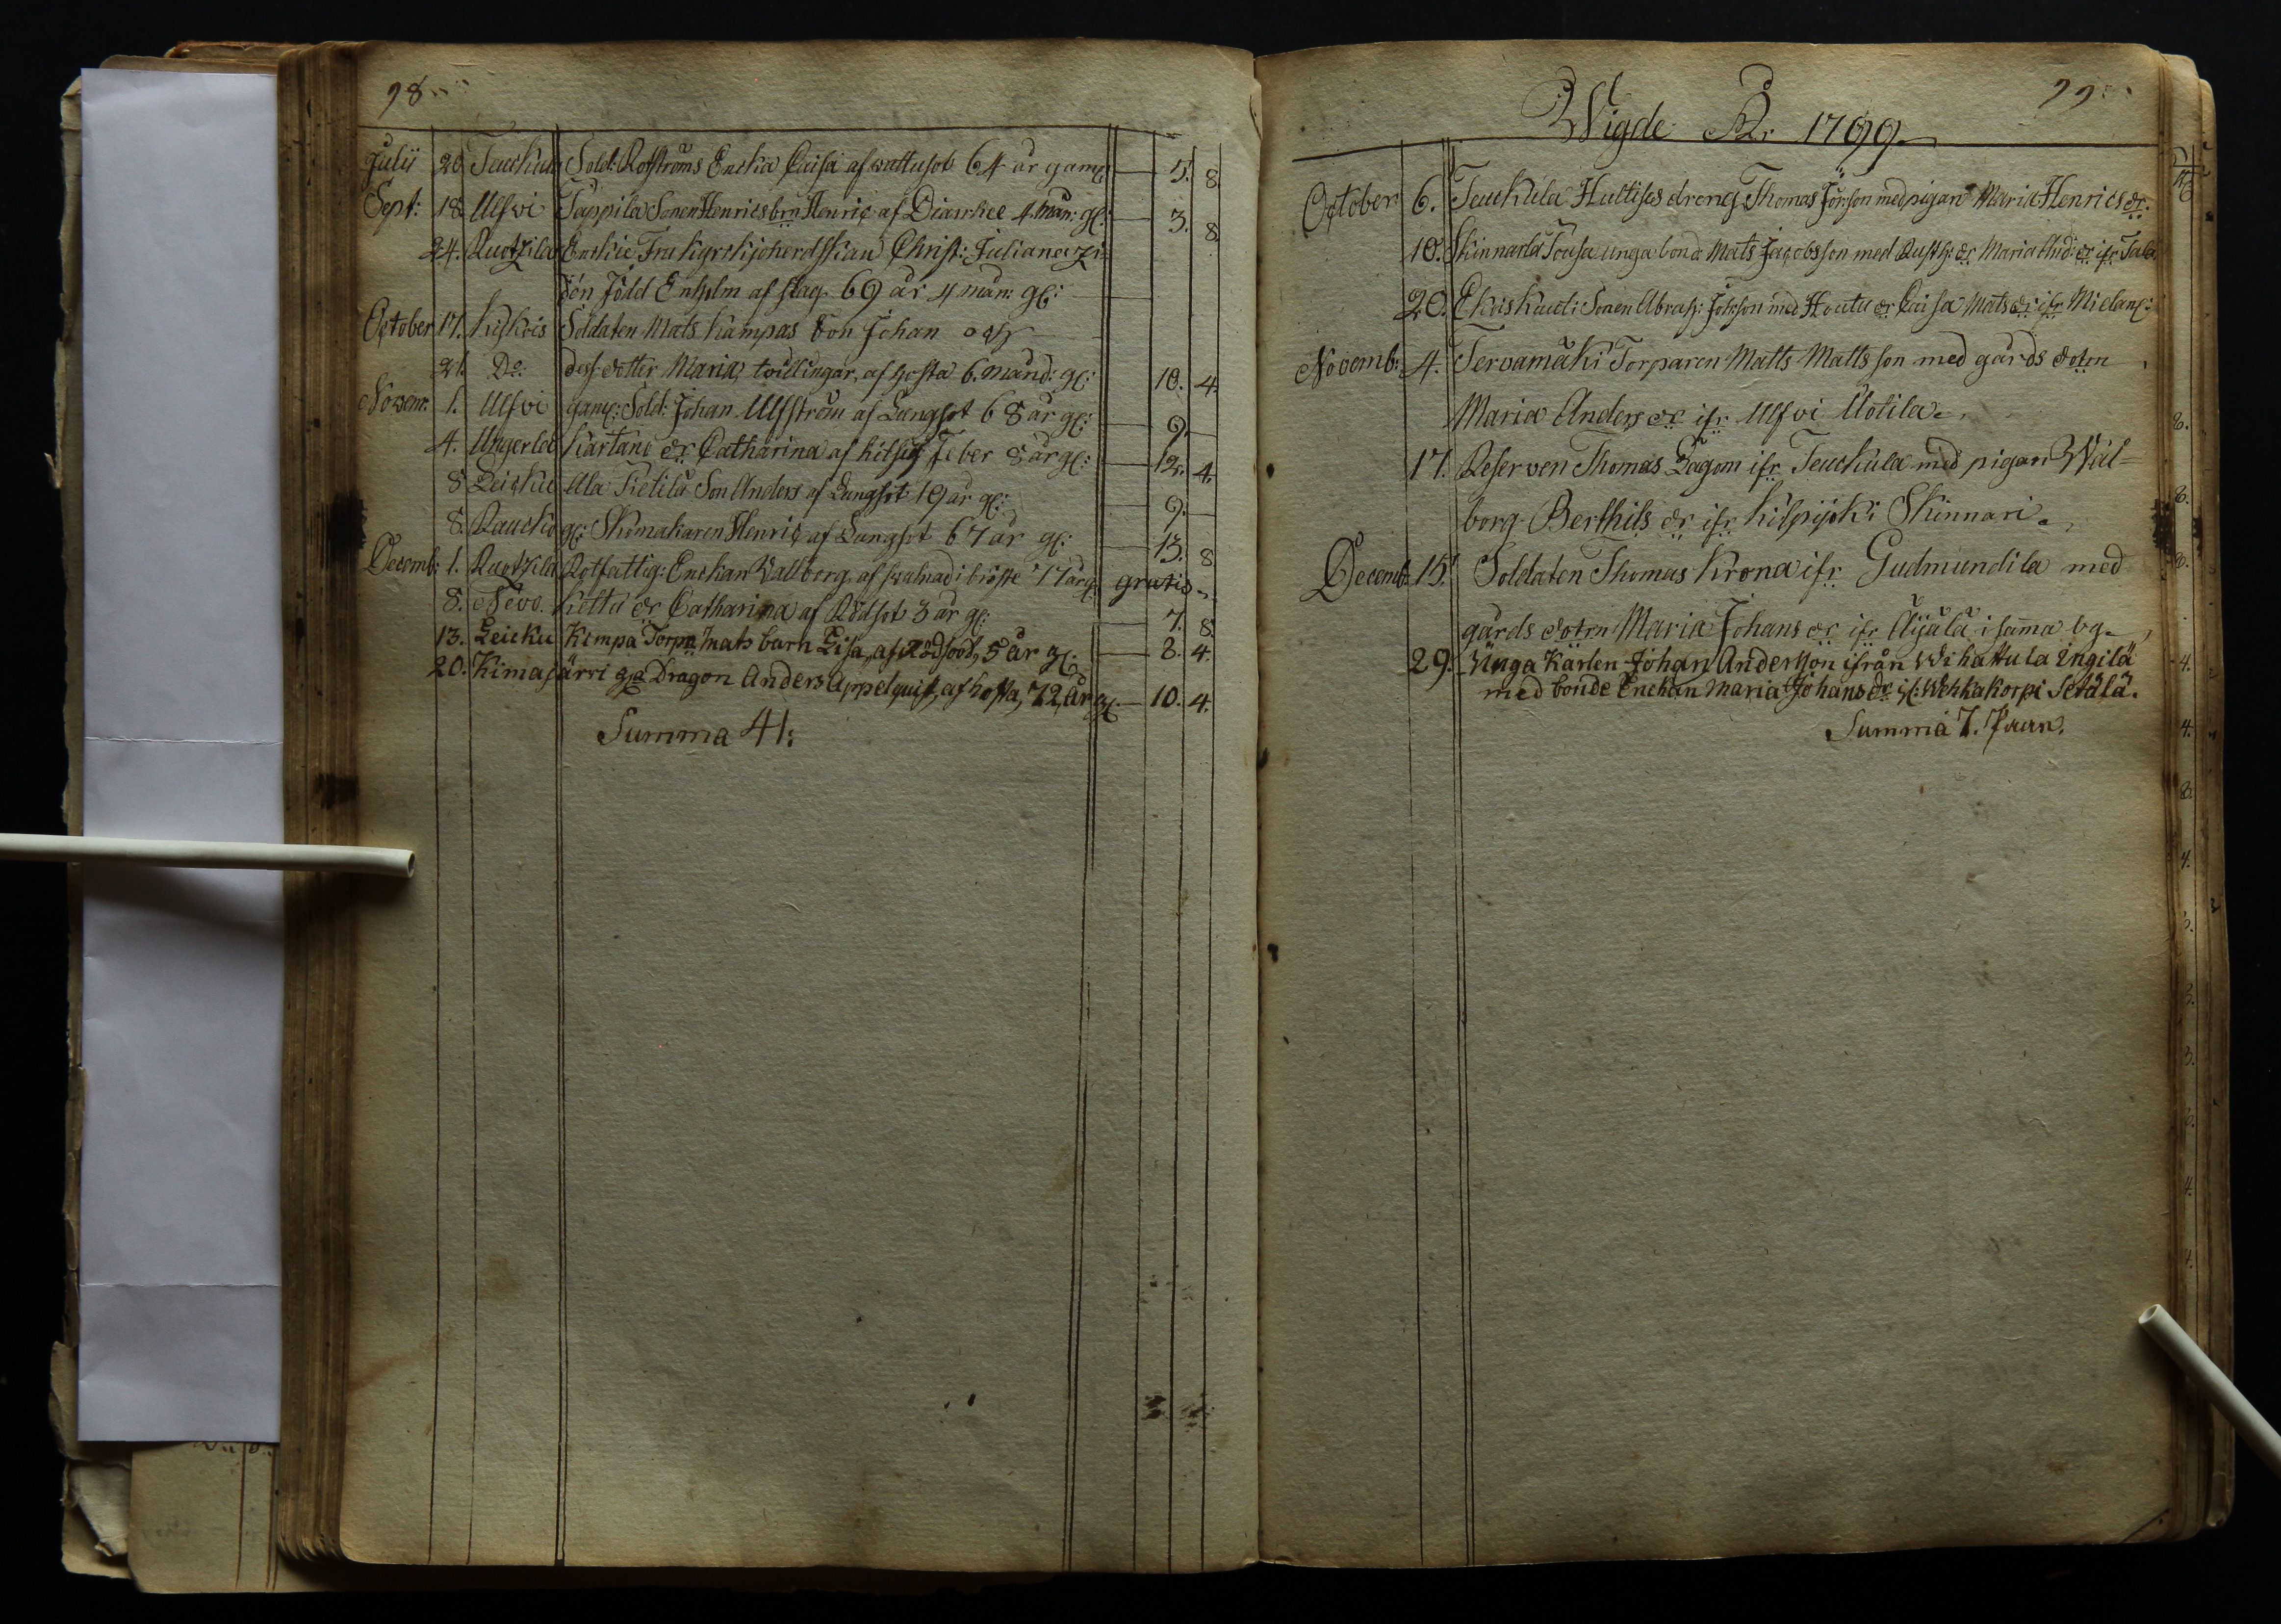 98
Julii 20. Teuckula Sold: Rosströms Encka Caisa af wattusot 64 år gaml: 5. 8.
Sept: 18. Ulfvi Tappila Sonen Henrics brn Henric af Diarrhee 4. mån: gl: 3. 8.
24. Ruotzila Enckie Fru Kyrckjoherdskan Christ: Juliana
född Enholm af slag 69 år 4 mån: gl:
October 17. Kiskois Soldaten Mats Kampas Son Johan och
21. Do: dess dotter Maria, tvillingar, af hosta 6. månd: gl: 10. 4.
Novem: 1. Ulfvi gaml: Sold: Johan Ulfström af Lungsot 68 år gl: 9.
4. Ungerlå Kartano dr Catharina af hitsig feber 8 år gl: 12. 4.
8. Leicku Ala Kietilä Son Anders af Lungsot 19 år gl: 9.
8. Raucko gl: Skomakaren Henric af Lungsot 67 år gl: 13. 8
Decemb: 1. Ruotzila Rotfattig: Enckan Wallberg, af swalnad i bröste 77 år gl: gratis
8. Kettu dr Catharina af Rödsot 3 år gl: 7. 8
13. Leicku Kimpa Torpa Mats barn Lisa, af Rödsoot, 5 år gl: 8. 4.
20. Kimasärvi gla Dragon Anders Appelquist, af hosta, 72 år gl. 10. 4.
Summa 41:
99
Wigde År 1799
October 6. Teuckula Hultis drengt Thomas Jör:son med pigan Maria Henrics dr:
10. Skinnarla Tousa unga bond: Mats Jacobsson med Rusth: dr Maria And: dr ifr Tala
20. Ekois Kauti: Sonen Abrah: Joh:son med Houtu dr Caisa Mats dr ifr
Novemb: 4. Tervamäki Torparen Matts Mattsson med gårds dotrn
Maria Anders dr ifr Ulfvi Uotila
17. Reserven Thomas Lagom ifr Teuckula med pigan Wal-
borg Berthils dr ifr Kilpijoki Skinnari
Decemb: 15. Soldaten Thomas Krona ifr Gudmundila med
gårds dotrn Maria Johans dr ifr Äijälä i sama by
29. Unga Karlen Johan Andersson ifrån Wihattula Ingilä
med bonde Enckan Maria Johans dr if: Wehkakorpi Setälä.
Summa 7. Paar.